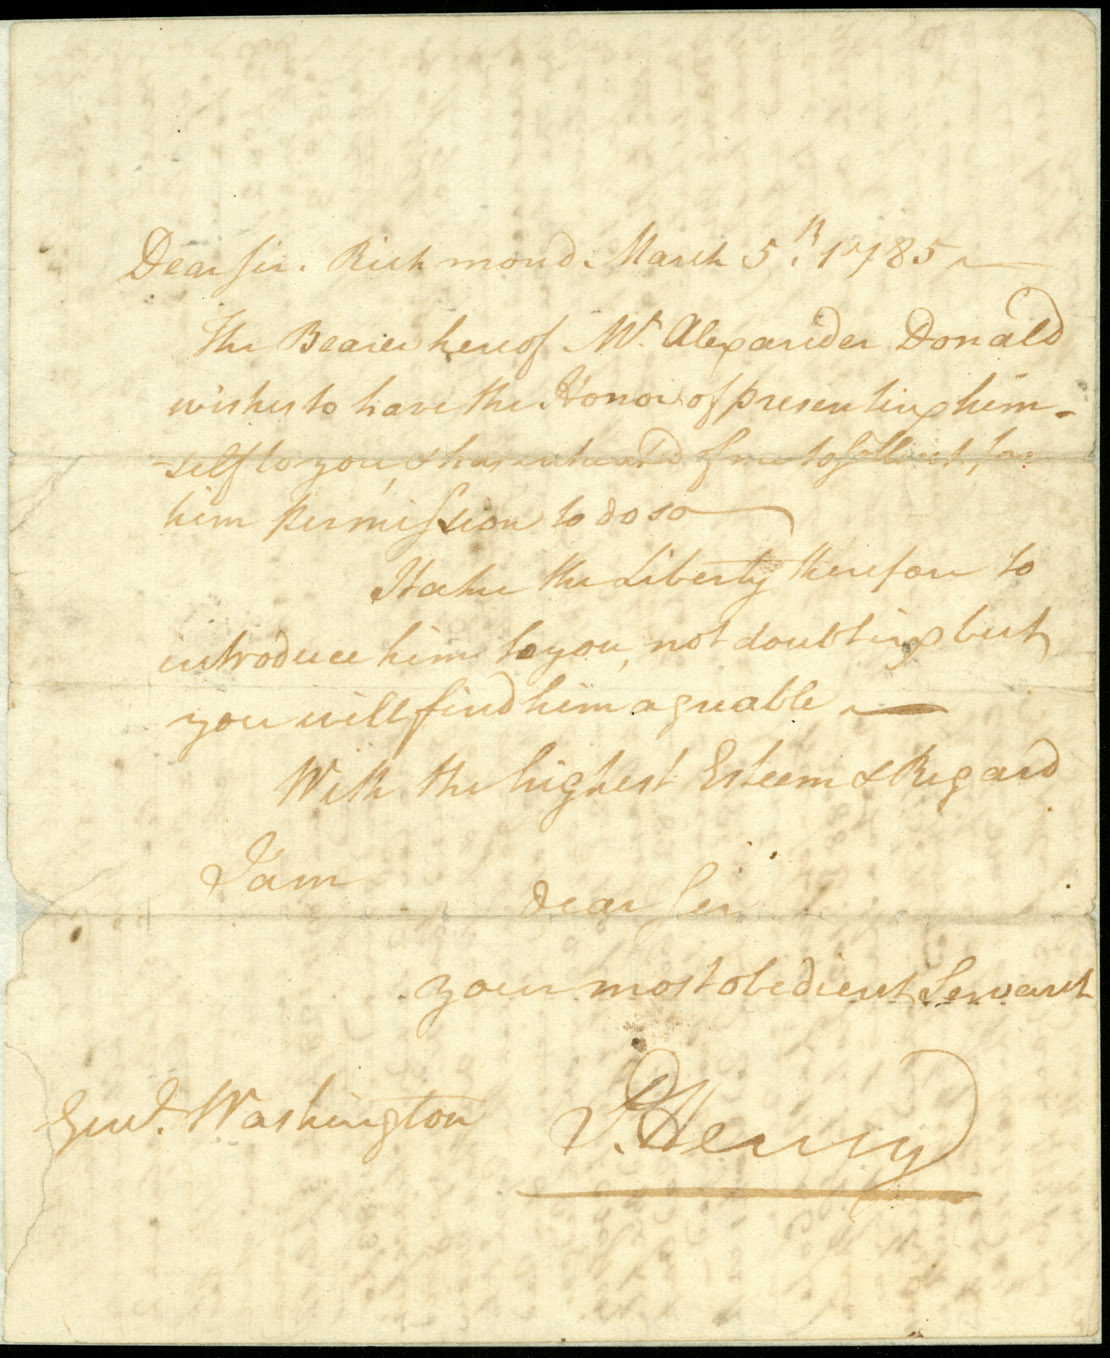 Dear Sir. Richmond. March 5th. 1785
The Bearer hereof Mr. Alexander Donald
wishes to have the Honor of presenting him-
self to you, & has intreated of me to sollicit for
him permission to do so
I take the Liberty therefore to
introduce him to you, not doubting but
you will find him agreable
With the highest Esteem & Regard
I am
Dear Sir
your most obedient Servant
P. Henry
Genl. Washington